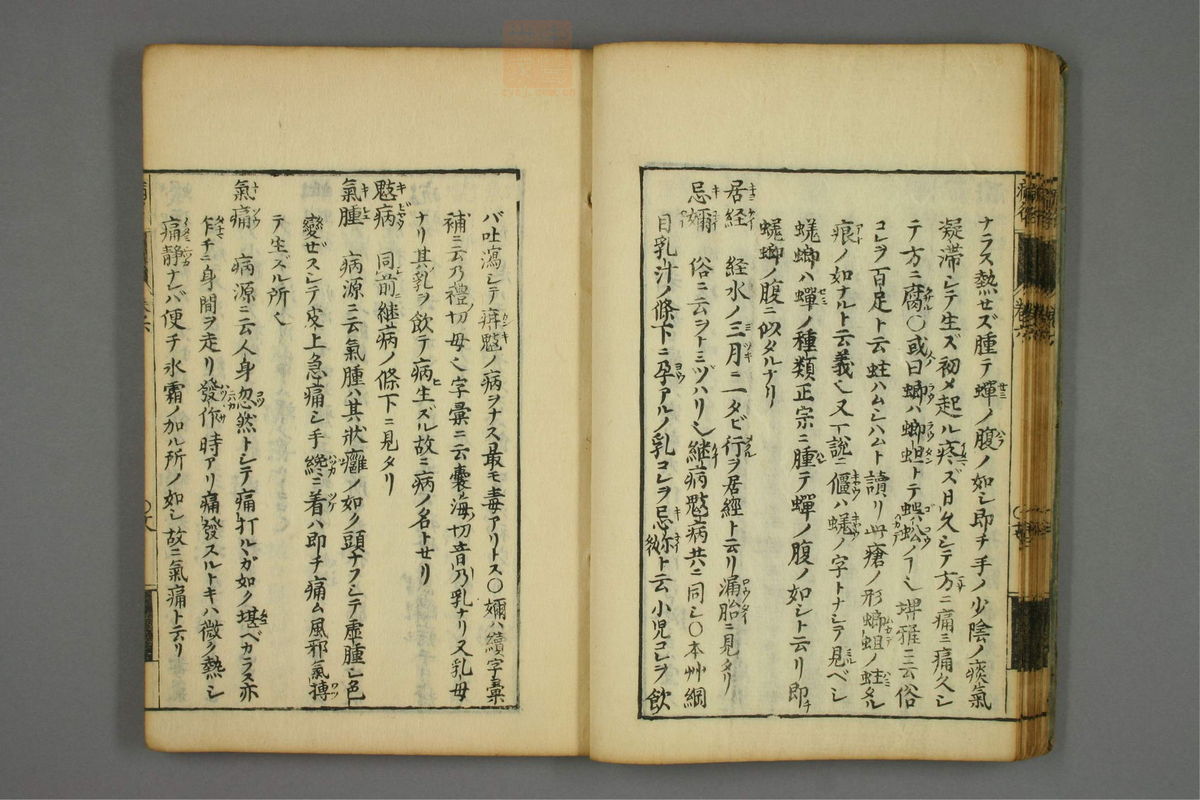 ナラス熱セズ腫テ蟬ノ腹ノ如シ即チ手ノ少陰ノ痰氣
凝滞シテ生ズ初メ起ル疼ズ日久シテ方ニ痛三痛久シ
テ方ニ腐〇或曰蝍ハ蝍蛆トテ蜈蚣ノ丁シ埤雅ニ云俗
コレヲ百足ト云蛀ハムシハムト讀リ此瘡ノ形蝍蛆ノ蛀タル
痕ノ如ナルト云義也又一說ニ傴ハ蜣ノ字トナシテ見ベシ
蜣螂ハ蟬ノ種類正宗ニ腫テ蟬ノ腹ノ如シト云リ即チ
蜣螂ノ腹ニ似タルナリ
居経 経水ノ三月ニ一タビ行ヲ居經ト云リ漏胎ニ見タリ
忌㜷 俗ニ云ヲトミヅハリ也継病鬾病共ニ同シ〇本艸綱
目乳汁ノ條下ニ孕アルノ乳コレヲ忌㜷ト云小児コレヲ飲
バ吐瀉シテ疳鬾ノ病ヲナス最モ毒アリトス〇㜷ハ續字彙
補ニ云乃禮切母也字彙ニ云囊海切音乃乳ナリ又乳母
ナリ其乳ヲ飲テ病生ズル故ニ病ノ名トセリ
鬾病 同前継病ノ條下ニ見タリ
氣腫 病源ニ云氣腫ハ其狀癰ノ如ク頭ナフシテ虛腫シ色
變ぜズシテ皮上急痛シ手纔ニ着ハ即チ痛ム風邪氣搏
テ生ズル所也
氣痛 病源ニ云人身忽然トシテ痛打ルヽガ如ク堪ベカラス亦
乍チニ身間ヲ走リ發作時アリ痛發スルトキハ微ク熱シ
痛静ナレバ便チ氷霜ノ加ル所ノ如シ故ニ氣痛ト云リ